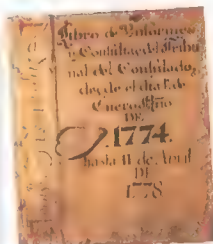 Libro de Informes
y Consultas del Tribu
nal del Consulado,
desde el dia 1º de
Enero Año
DE
1774.
hasta 11 de Abril
DE
1778